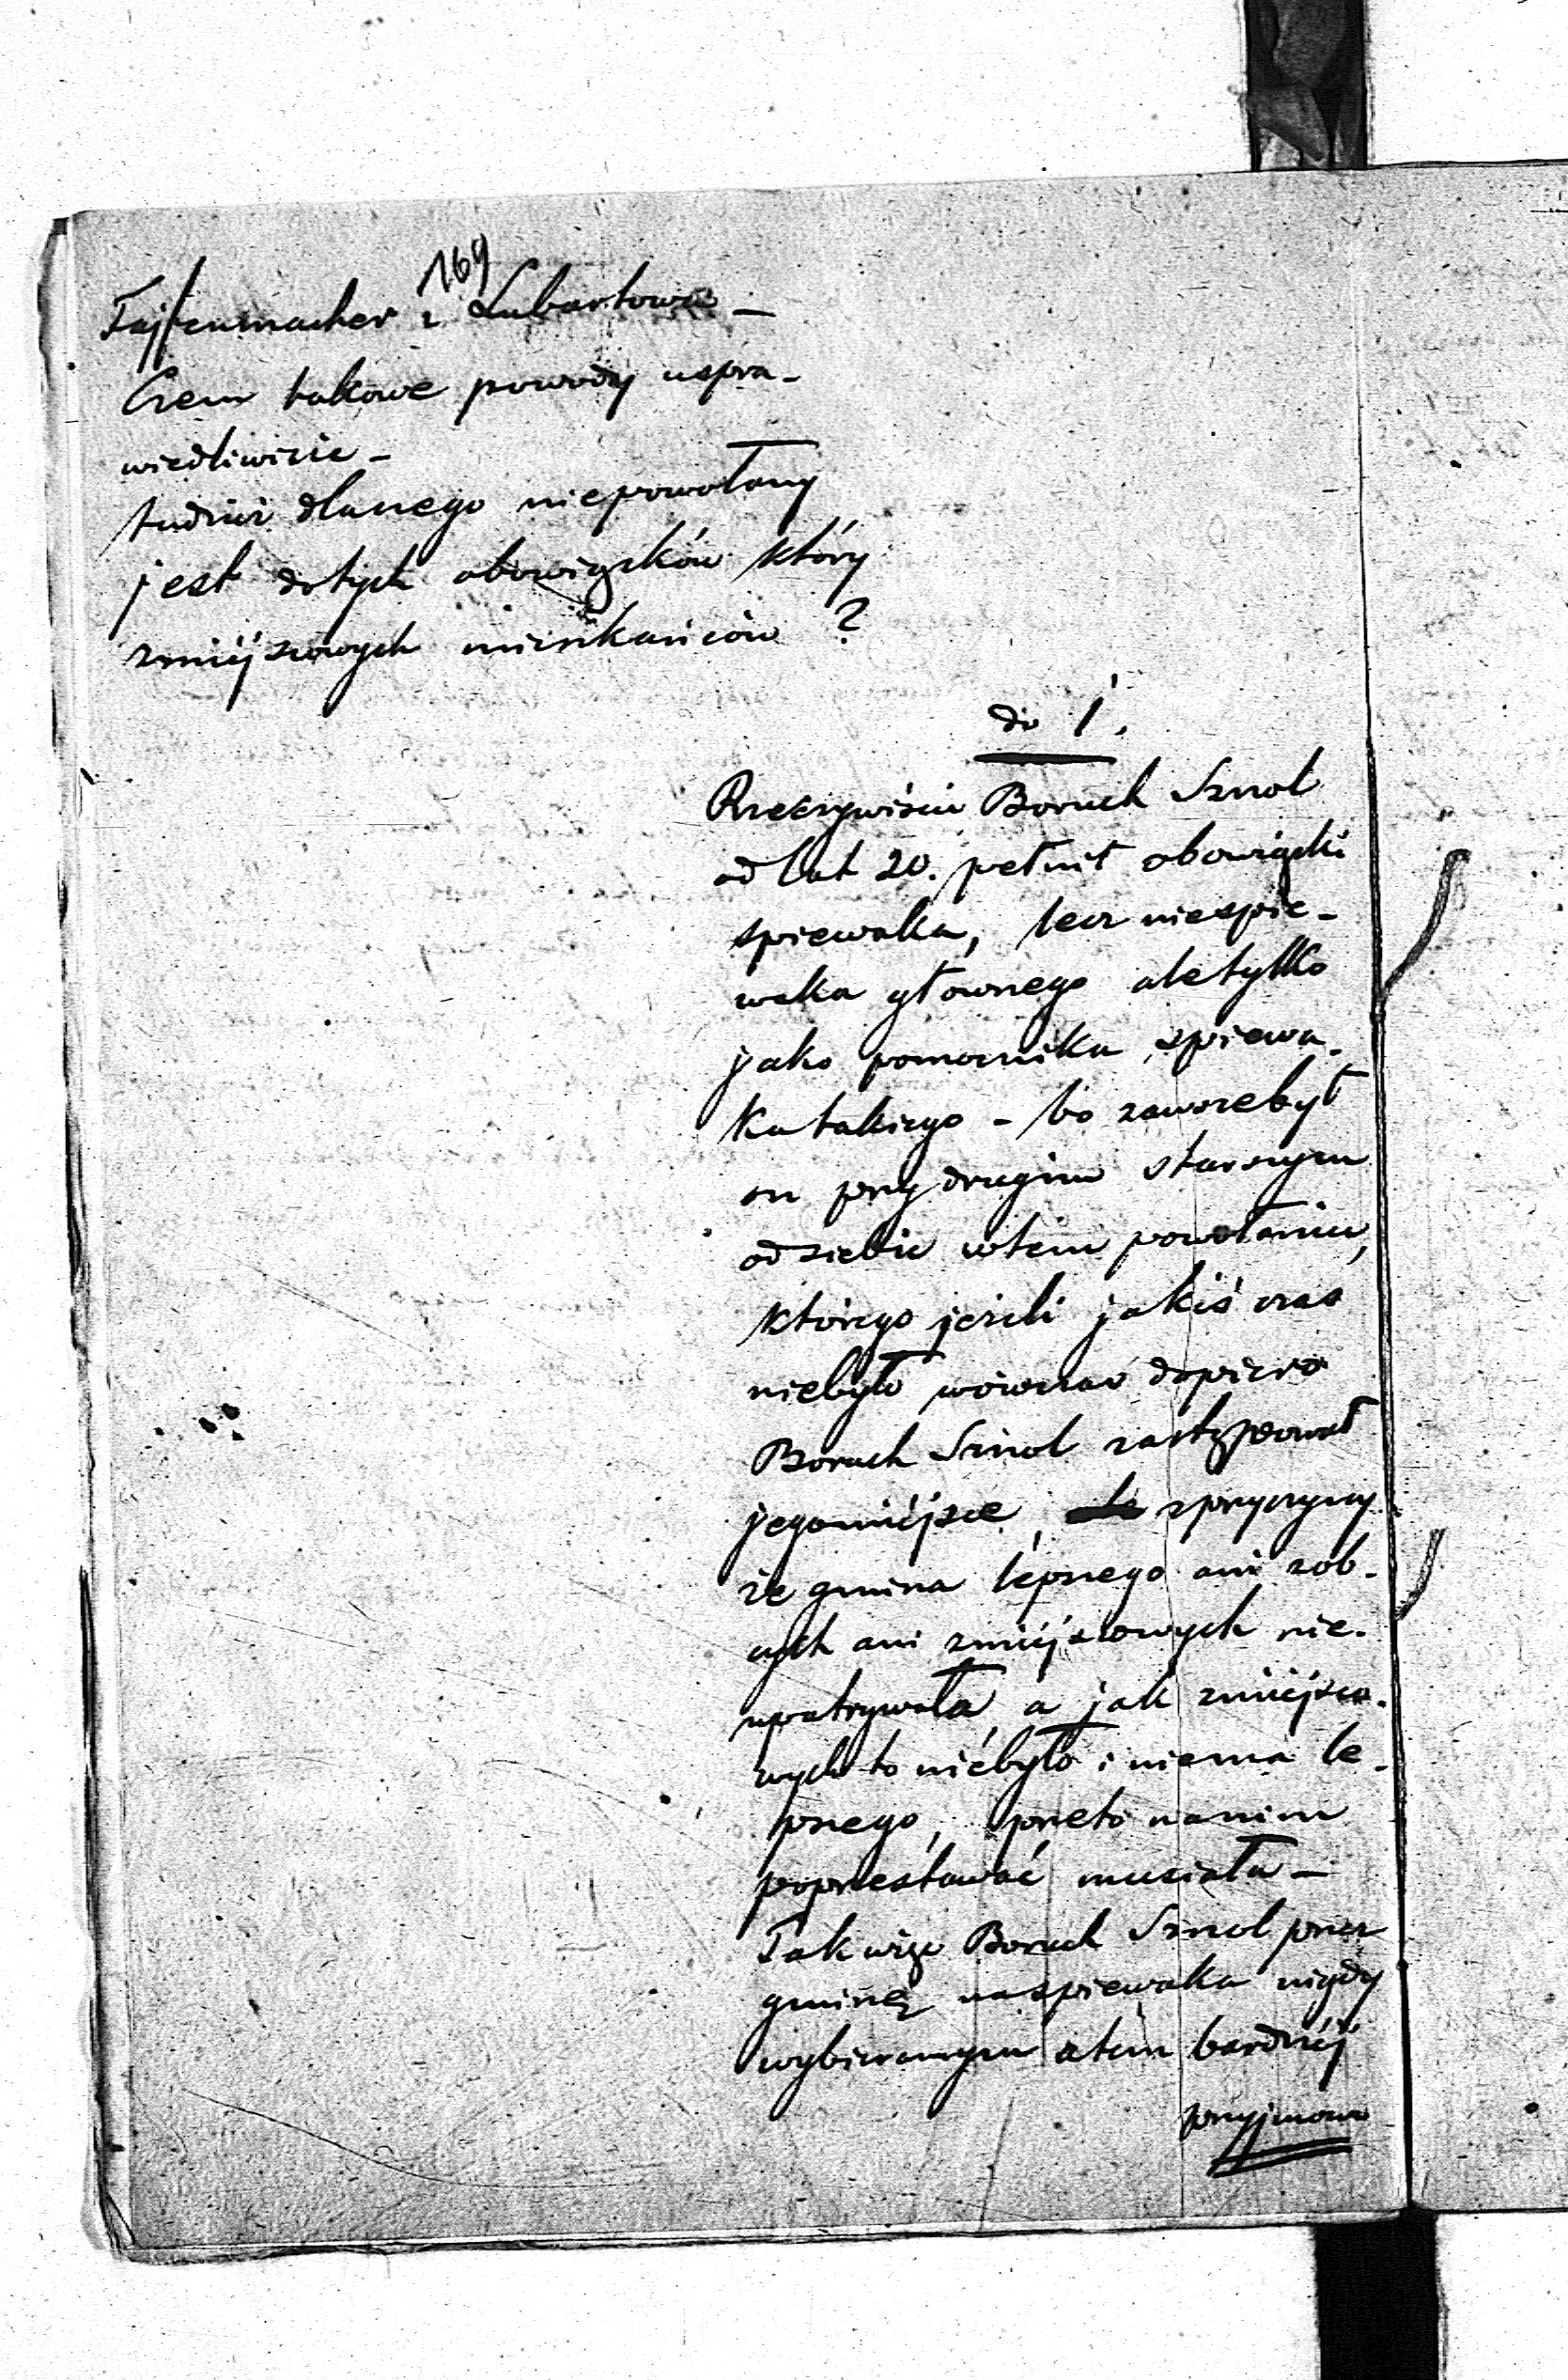 169
Fajfenmacher z Lubartowa –
Czem takowe powody uspra-
wiedliwicie –
tudzież dlaczego niepowołany
jest dotych obowiązków który
zmiéjscowych mieszkańców ?
do 1.
Rzeczywiście Boruch Sznol
od lat 20. pełnił obowiązki
spiewaka, lecz niespie-
waka głownego aletylko
jako pomocnika spiewa-
ka takiego – bo zawszebył
on przy drugim starszym
odsiebie wtem powołaniu,
którego jeżeli jakiś czas
niebyło wówczas dopiero
Boruch Sznol zastępował
jegomiéjsce, zprzyczyny
że gmina lépszego ani zob-
cych ani zmiéjscowych nie-
upatrywała, a jak zmiéjsco-
wych to niebyło i niema le-
pszego, przeto nanim
poprzestawać musiała –
Tak więc Boruch Sznol przez
gminę naspiewaka nigdy
wybieranym atem bardziéj
przyjmowa